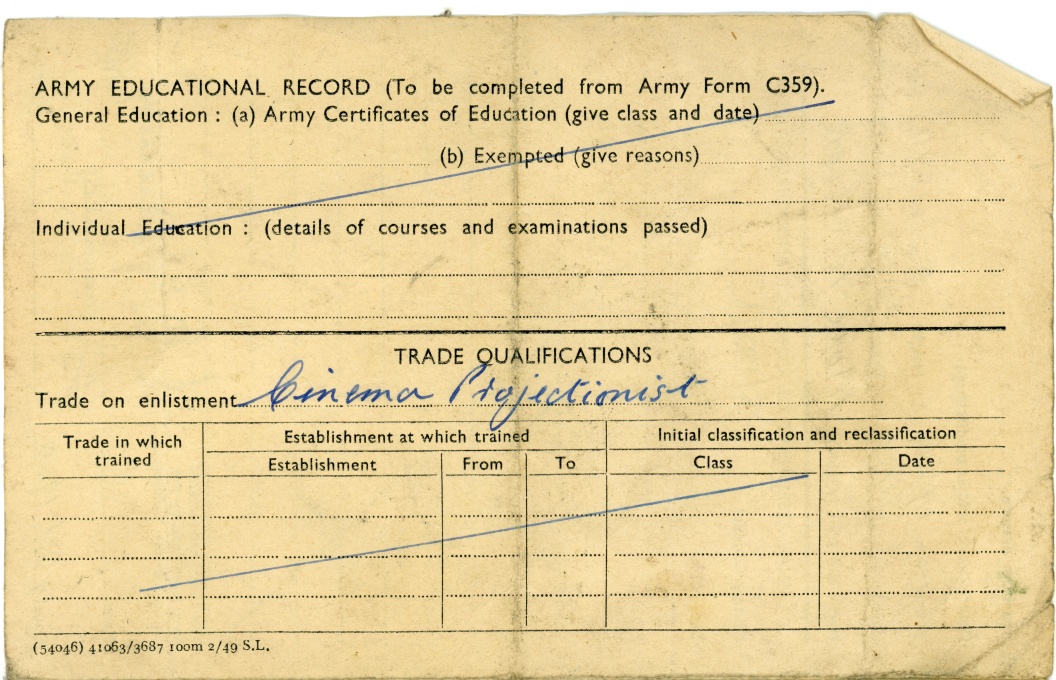 ARMY EDUCATIONAL RECORD (To be completed from Army Form C359).
General Education : (a) Army Certificates of Education (give class and date)
(b) Exempted (give reasons)
Individual Education : (details of courses and examinations passed)
TRADE QUALIFICATIONS
Trade on enlistment Cinema Projectionist
Trade in which trained
Establishment at which trained
Initial classification and reclassification
Establishment From To Class Date
(54046) 41063/3687 100m 2/49 S.L.